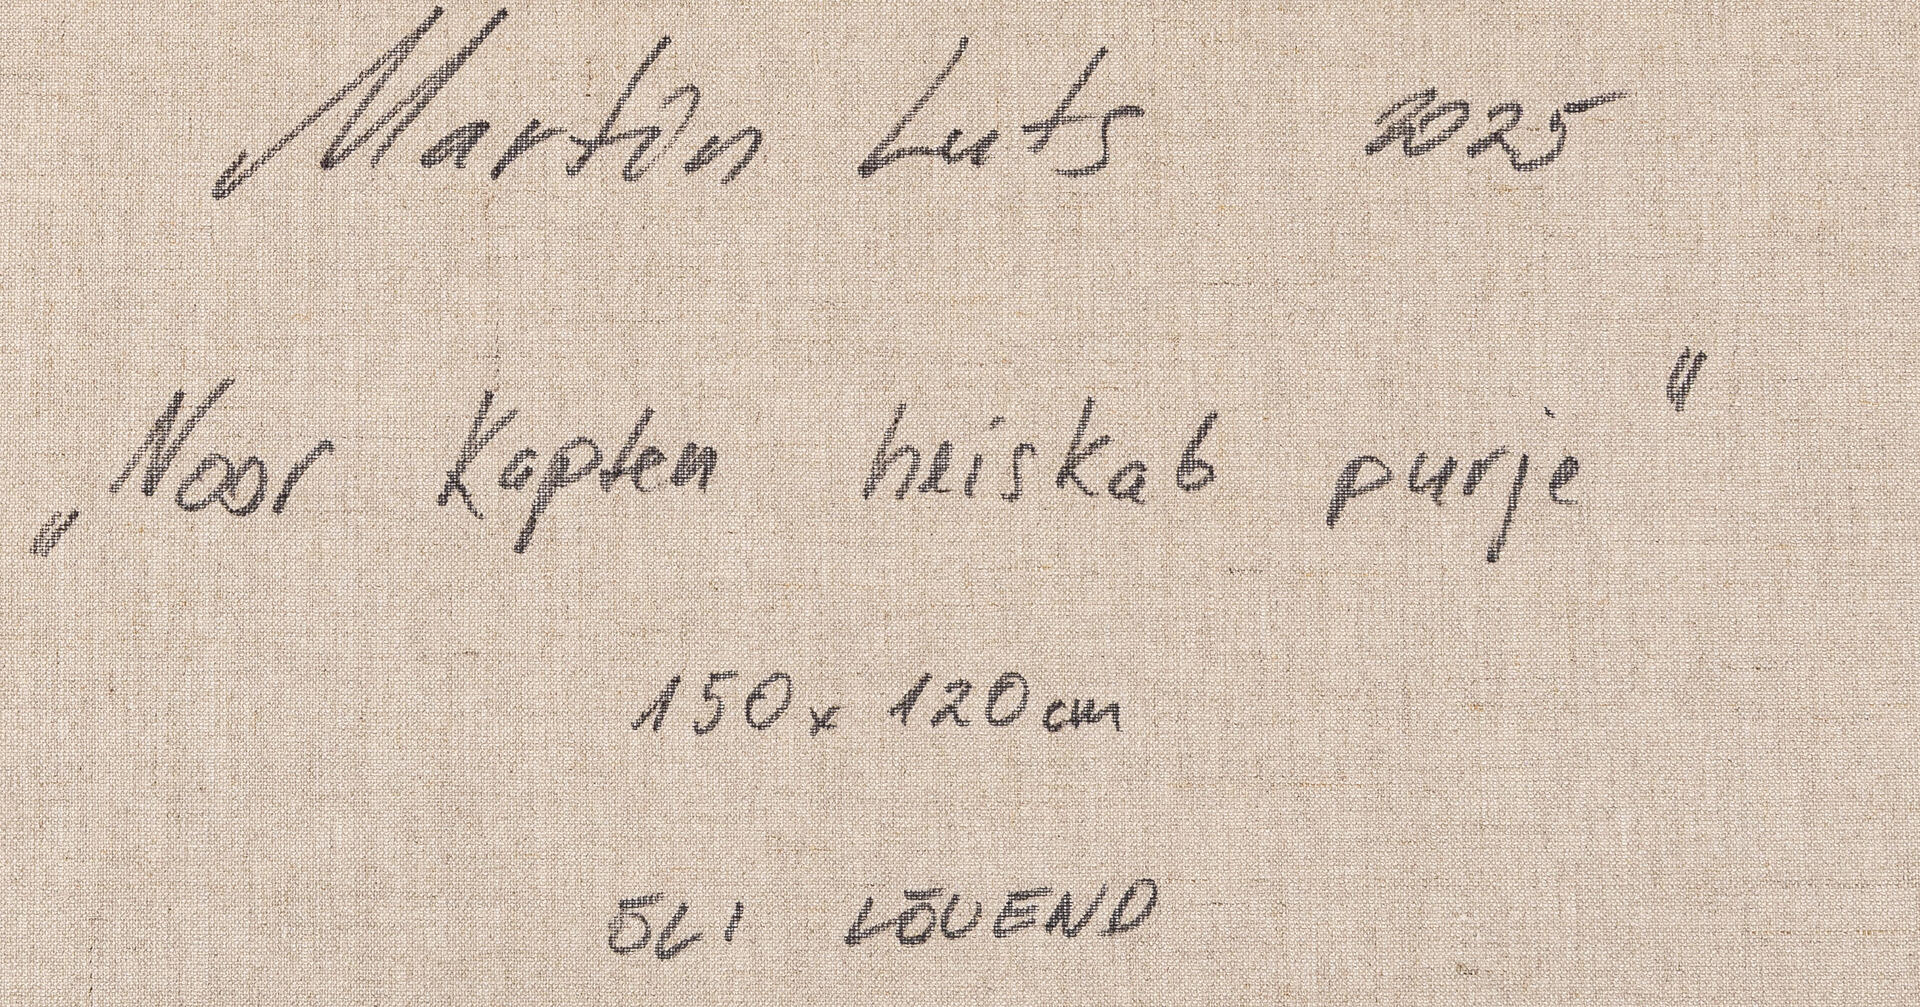 Martin Luts 2025
„Noor Kapten heiskab purje"
150x 120cm
ÕLI LÕUEND